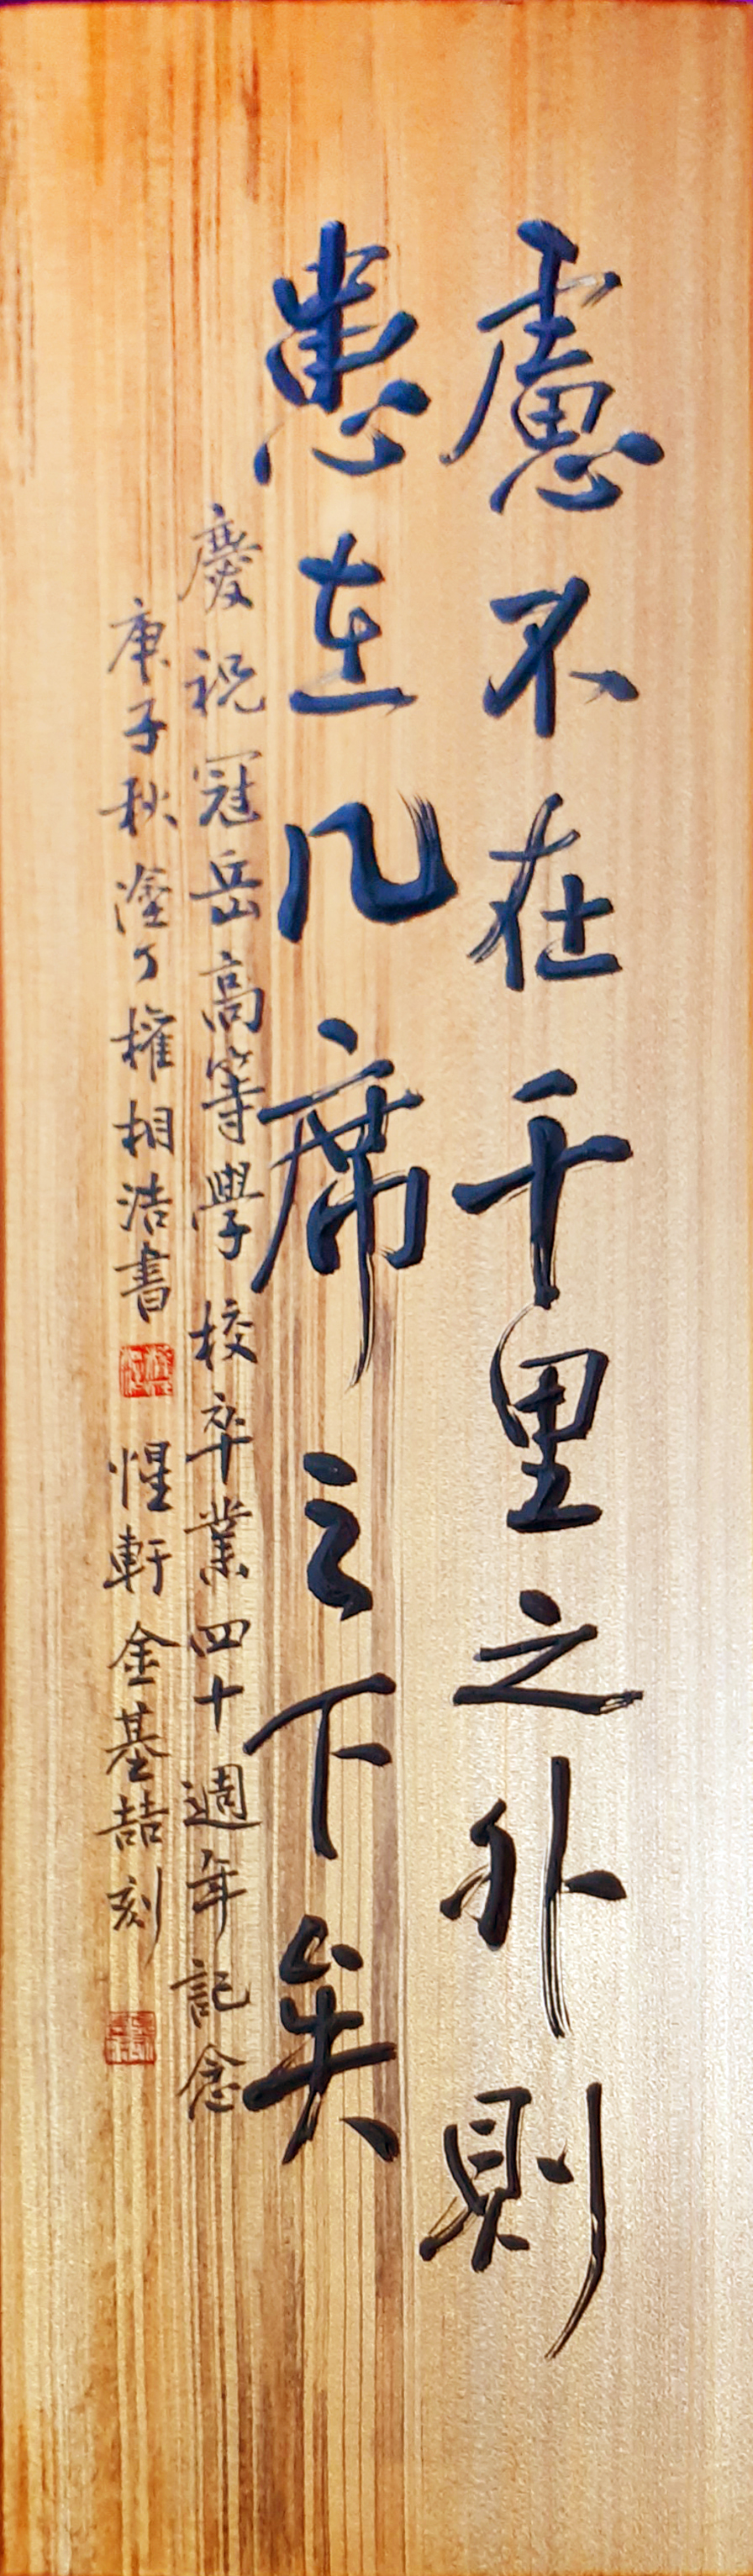 慮不在千里之外則
患在几席之下矣
慶祝冠岳高等學校卒業四十週年記念
庚子秋塗丁權相浩書
惺軒金基喆刻